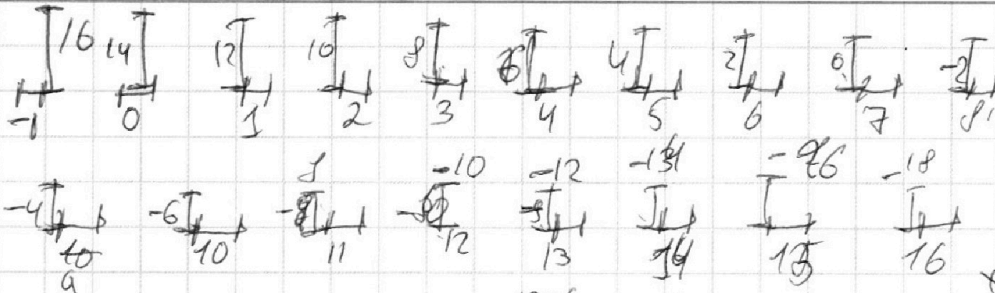 16 14 12 10 8 6 4 2 0 -2
-1 0 1 2 3 4 5 6 7 8
-10 -12 -14 -16 -18
-4 -6 -8
9 10 11 12 13 14 15 16